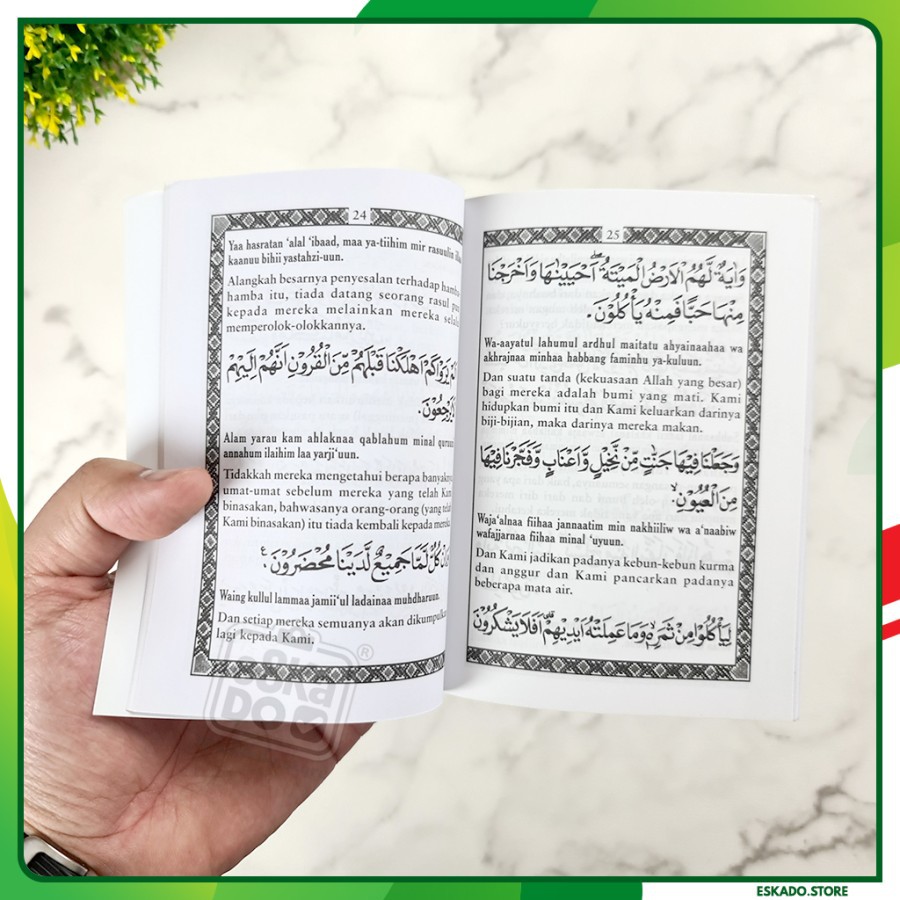 24
Yaa hasratan ‘alal ‘ibaad, maa ya-tiihim mir rasuulin
kaanuu bihii yastahzi-uun.
Alangkah besarnya penyesalan terhadap hamba
hamba itu, tiada datang seorang rasul pun
kepada mereka melainkan mereka selalu
memperolok-olokkannya.
يَرَوْا كَمْ اَهْلَكْنَا قَبْلَهُمْ مِّنَ الْقُرُوْنِ اَنَّهُمْ اِلَيْهِمْ
يَرْجِعُوْنَ.
Alam yarau kam ahlaknaa qablahum minal quruun
annahum ilaihim laa yarji‘uun.
Tidakkah mereka mengetahui berapa banyaknya
umat-umat sebelum mereka yang telah Kami
binasakan, bahwasanya orang-orang (yang telah
Kami binasakan) itu tiada kembali kepada mereka
كُلٌّ لَّمَّا جَمِيْعٌ لَّدَيْنَا مُحْضَرُوْنَ ࣖ
Waing kullul lammaa jamii‘ul ladainaa muhdharuun.
Dan setiap mereka semuanya akan dikumpulkan
lagi kepada Kami.
25
وَاٰيَةٌ لَّهُمُ الْاَرْضُ الْمَيْتَةُ ۖ اَحْيَيْنٰهَا وَاَخْرَجْنَا
مِنْهَا حَبًّا فَمِنْهُ يَأْكُلُوْنَ.
Wa-aayatul lahumul ardhul maitatu ahyainaahaa wa
akhrajnaa minhaa habbang faminhu ya-kuluun.
Dan suatu tanda (kekuasaan Allah yang besar)
bagi mereka adalah bumi yang mati. Kami
hidupkan bumi itu dan Kami keluarkan darinya
biji-bijian, maka darinya mereka makan.
وَجَعَلْنَا فِيْهَا جَنّٰتٍ مِّنْ نَّخِيْلٍ وَّاَعْنَابٍ وَّفَجَّرْنَا فِيْهَا
مِنَ الْعُيُوْنِۙ
Waja‘alnaa fiihaa jannaatim min nakhiiliw wa a‘naabiw
wafajjarnaa fiihaa minal ‘uyuun.
Dan Kami jadikan padanya kebun-kebun kurma
dan anggur dan Kami pancarkan padanya
beberapa mata air.
لِيَأْكُلُوْا مِنْ ثَمَرِهٖ وَمَا عَمِلَتْهُ اَيْدِيْهِمْ ۗ اَفَلَا يَشْكُرُوْنَ
eska
DO
ESKADO.STORE